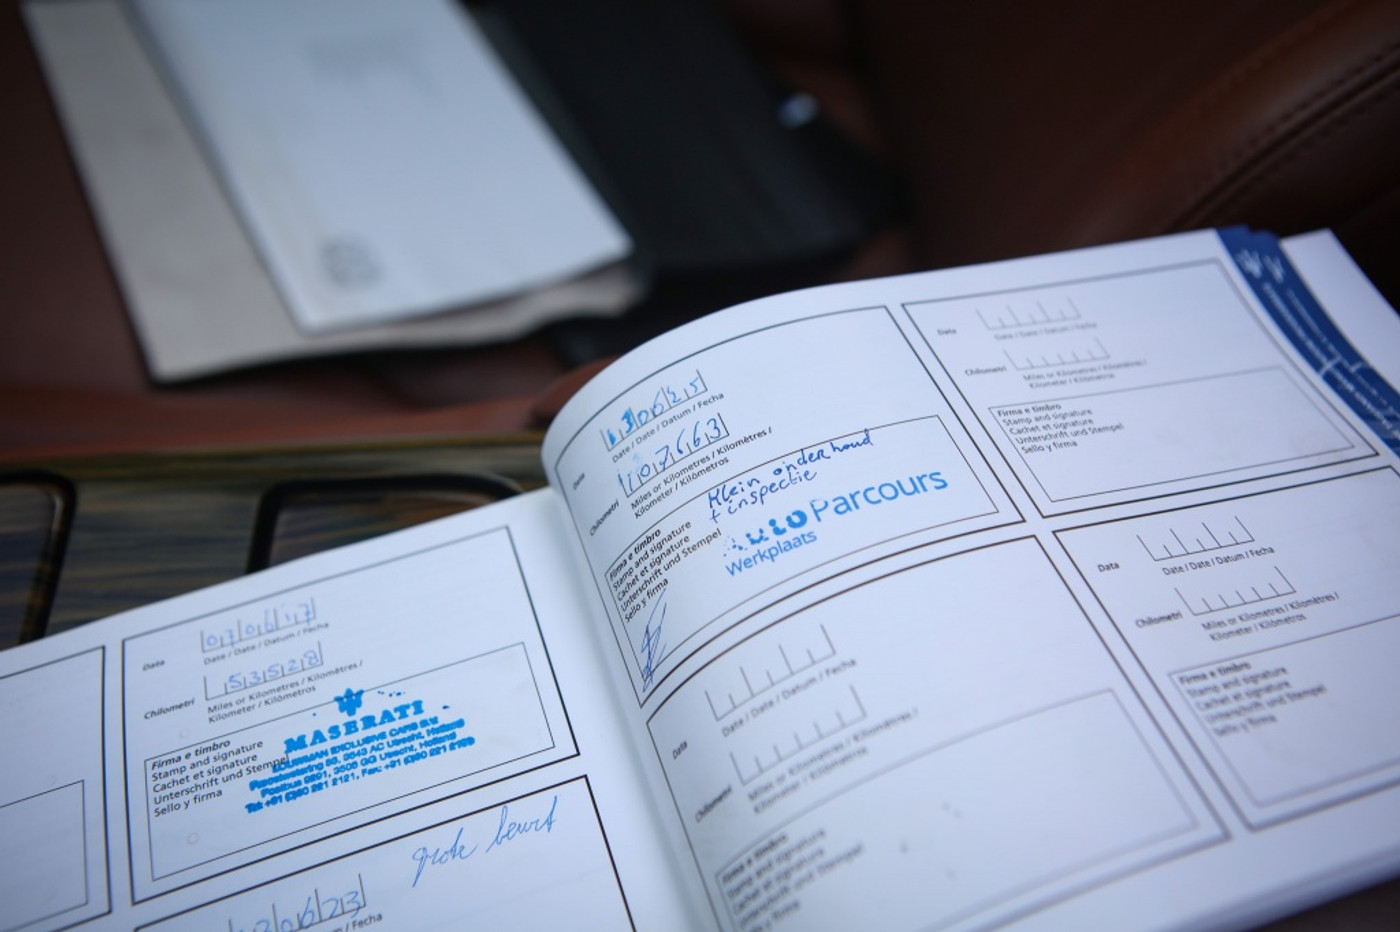 Data
070617
Date / Date / Datum / Fecha
Chilometri
53528
Miles or Kilometres / Kilomètres /
Kilometer / Kilómetros
Firma e timbro
Stamp and signature
Cachet et signature
Unterschrift und Stempel
Sello y firma
MASERATI
EXCLUSIVE CARS B.V.
3543 AC Utrecht, Holland
Postbus 3505 GG Utrecht, Holland
grote beurt
0623
/ Fecha
Data
130625
Date / Date / Datum / Fecha
Chilometri
107663
Miles or Kilometres / Kilomètres /
Kilometer / Kilómetros
Klein onderhoud
+ inspectie
Firma e timbro
Stamp and signature
Cachet et signature
Unterschrift und Stempel
Sello y firma
Auto Parcours
Werkplaats
Data
Date / Date / Datum / Fecha
Chilometri
Miles or Kilometres / Kilomètres /
Kilometer / Kilómetros
Firma e timbro
Stamp and signature
Cachet et signature
Unterschrift und Stempel
Sello y firma
Data
Date / Date / Datum / Fecha
Chilometri
Miles or Kilometres / Kilomètres /
Kilometer / Kilómetros
Firma e timbro
Stamp and signature
Cachet et signature
Unterschrift und Stempel
Sello y firma
Data
Date / Date / Datum / Fecha
Chilometri
Miles or Kilometres / Kilomètres /
Kilometer / Kilómetros
Firma e timbro
Stamp and signature
Cachet et signature
Unterschrift und Stempel
Sello y firma